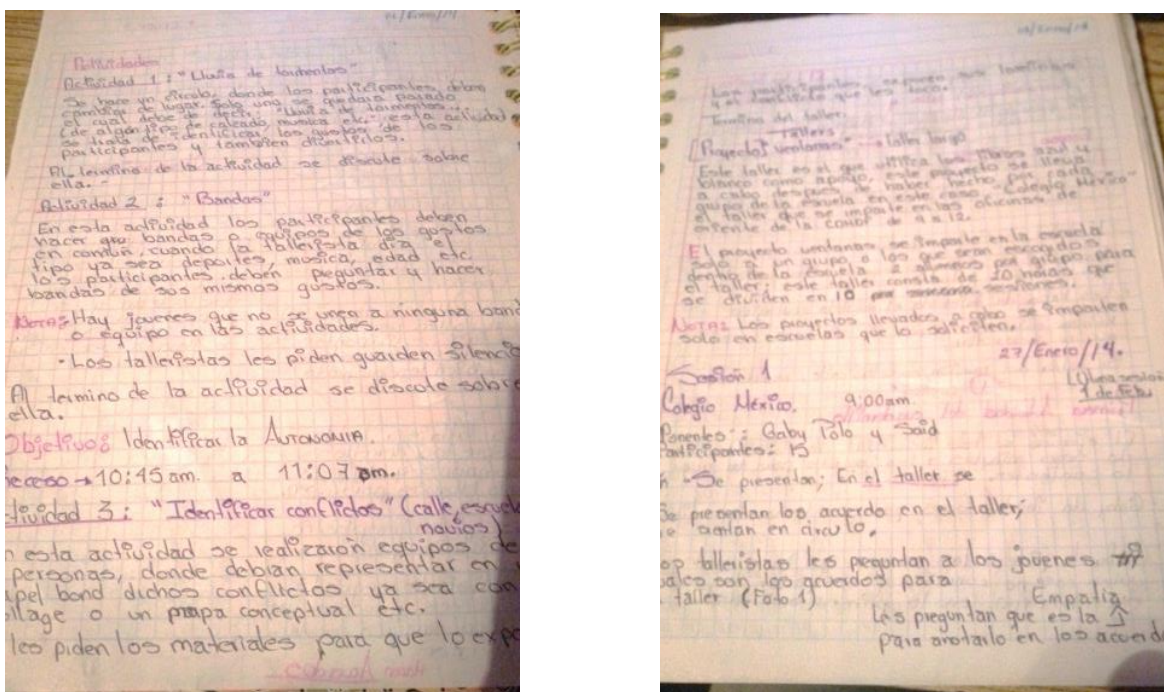 Actividades
Actividad 1 : "Lluvia de tormentas"
Se hace un circulo, donde los participantes, deben
cambiar de lugar. Solo uno se quedara parado
el cual debe de decir: "lluvia de tormentas..
(de algún tipo de calzado, musica etc." esta actividad
se trata de identificar los gustos de los
participantes y tambien divertirlos.
Al termino de la actividad se discute sobre
ella.
Actividad 2 : "Bandas"
En esta actividad los participantes deben
hacer bandas o equipos de los gustos
en común, cuando la tallerista dia el
tipo ya sea deportes, musica, edad etc.
los participantes deben preguntar y hacer
bandas de sus mismos gustos.
NOTA: Hay jovenes que no se unen a ninguna band
o equipo en las actividades.
· Los talleristas les piden guarden silencio
Al termino de la actividad se discute sobre
ella.
Objetivo: Identificar la AUTONOMIA.
eceso → 10:45 am. a 11:07 am.
tividad 3: "Identificar conflictos" (calle, escuel
novios)
n esta actividad se realizaron equipos de
personas, donde debian representar en
apel bond dichos conflictos, ya sea con
ollage o un mapa conceptual etc.
les piden los materiales para que lo expo
Los participantes exponen sus laminas
y el conflicto que les toco.
Termina del taller.
Tallers
[Proyecto] ventanas - (taller largo)
Este taller es el que utiliza los libros azul y
blanco como apoyo, este proyecto se lleva
a cabo despues de haber hecho por cada
grupo de la escuela en este caso "Colegio México"
el taller que se imparte en las oficinas de
oriente de la de 9 a 12.
El proyecto ventanas, se imparte en la escuela
solo a un grupo o los que sean escogidos
dentro de la escuela 2 alumnos por grupo para
el taller; este taller consta de 20 horas que
se dividen en 10 sesiones.
NOTA: Los proyectos llevados a cabo se imparten
solo en escuelas que lo soliciten.
27/Enero/14.
Sesión 1
1 de Feb.
Colegio México. 9:00am
Ponentes: Gaby Polo y Said
Participantes: 15
- Se presentan; En el taller se
Se presentan los acuerdo en el taller;
e sientan en circulo.
os talleristas les preguntan a los jovenes
uales son los acuerdos para
taller (Foto 1)
Empatia
Les preguntan que es la ↑
para anotarlo en los acuerdo